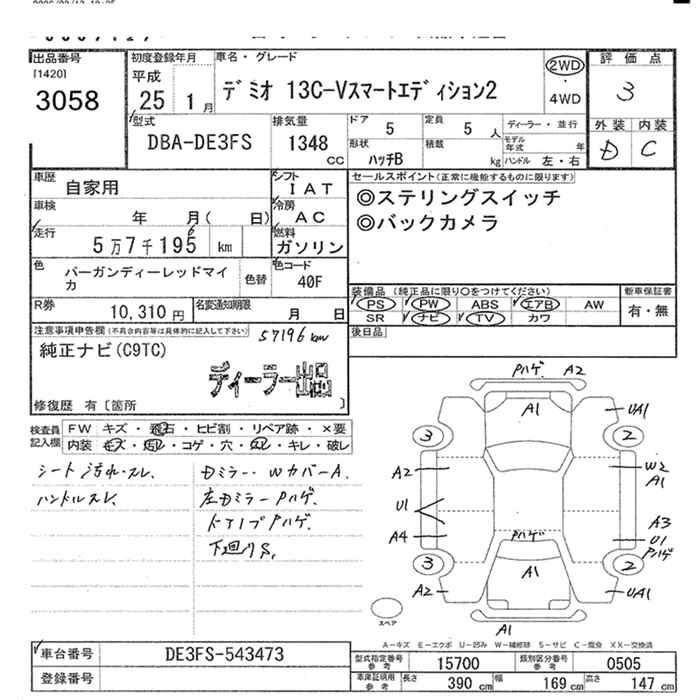 出品番号
[1420]
3058
初度登録年月
平成
25 1月
車名・グレード
デミオ 13C-Vスマートエディション2
2WD
・
4WD
評価点
3
外装 内装
D C
型式
DBA-DE3FS
排気量
1348
CC
ドア
5
定員
5 人
形状
ハッチB
積載
kg
ディーラー・並行
モデル年式 年
ハンドル 左・右
車歴
自家用
シフト
IAT
車検
年 月( 日)
冷房
AC
走行
5万7千195 km
6
燃料
ガソリン
色
バーガンディーレッドマイカ
色替
色コード
40F
R券
10,310円
名変通知期限
月 日
セールスポイント(正常に機能するものに限ります)
◎ステリングスイッチ
◎バックカメラ
装備品(純正品に限り○をつけてください)
PS PW ABS エアB AW
SR ナビ TV カワ
新車保証書
有・無
後日品
注意事項申告欄(不具合内容等は具体的に記入して下さい)
57196km
純正ナビ(C9TC)
ディーラー出品
修復歴 有〔箇所 〕
検査員記入欄
FW キズ・飛石・ヒビ割・リペア跡・×要
内装 キズ・汚れ・コゲ・穴・スレ・キレ・破レ
シート汚れ・スレ、
ハンドルスレ、
Dミラー・WカバーA.
左Dミラー Pハゲ、
ドア1プ Pハゲ.
下廻りS,
Pハゲ. A2
A1
UA1
3
2
A2
W2
A1
U1
A3
A4
U1
Pハゲ
Pハゲ
3
2
A1
A2
UA1
A1
スペア
A−キズ E−エクボ U−凹み W−補修跡 S−サビ C−腐食 XX−交換済
車台番号
DE3FS-543473
登録番号
型式指定番号
参考
15700
類別区分番号
参考
0505
車庫証明用
参考
長さ 390 cm 幅 169 cm 高さ 147 cm